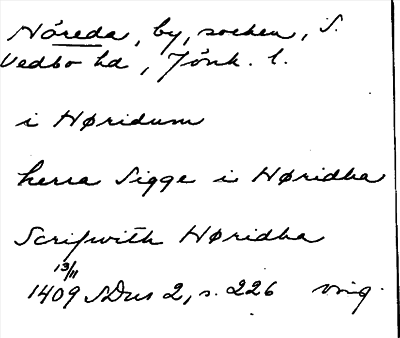 Nöreda, by, socken, S.
Vedbo hd, Jönk. l.
i Nøridum
herra Sigge i Nøridha
Scrifwith Nøridha
13/11
1409 SDns 2, s. 226 orig.